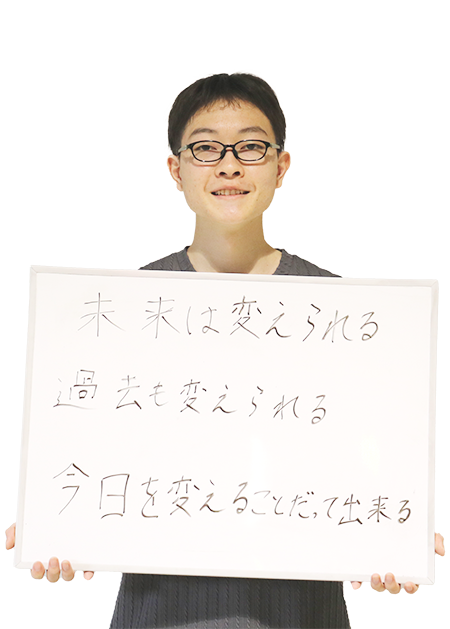 未来は変えられる
過去も変えられる
今日を変えることだって出来る